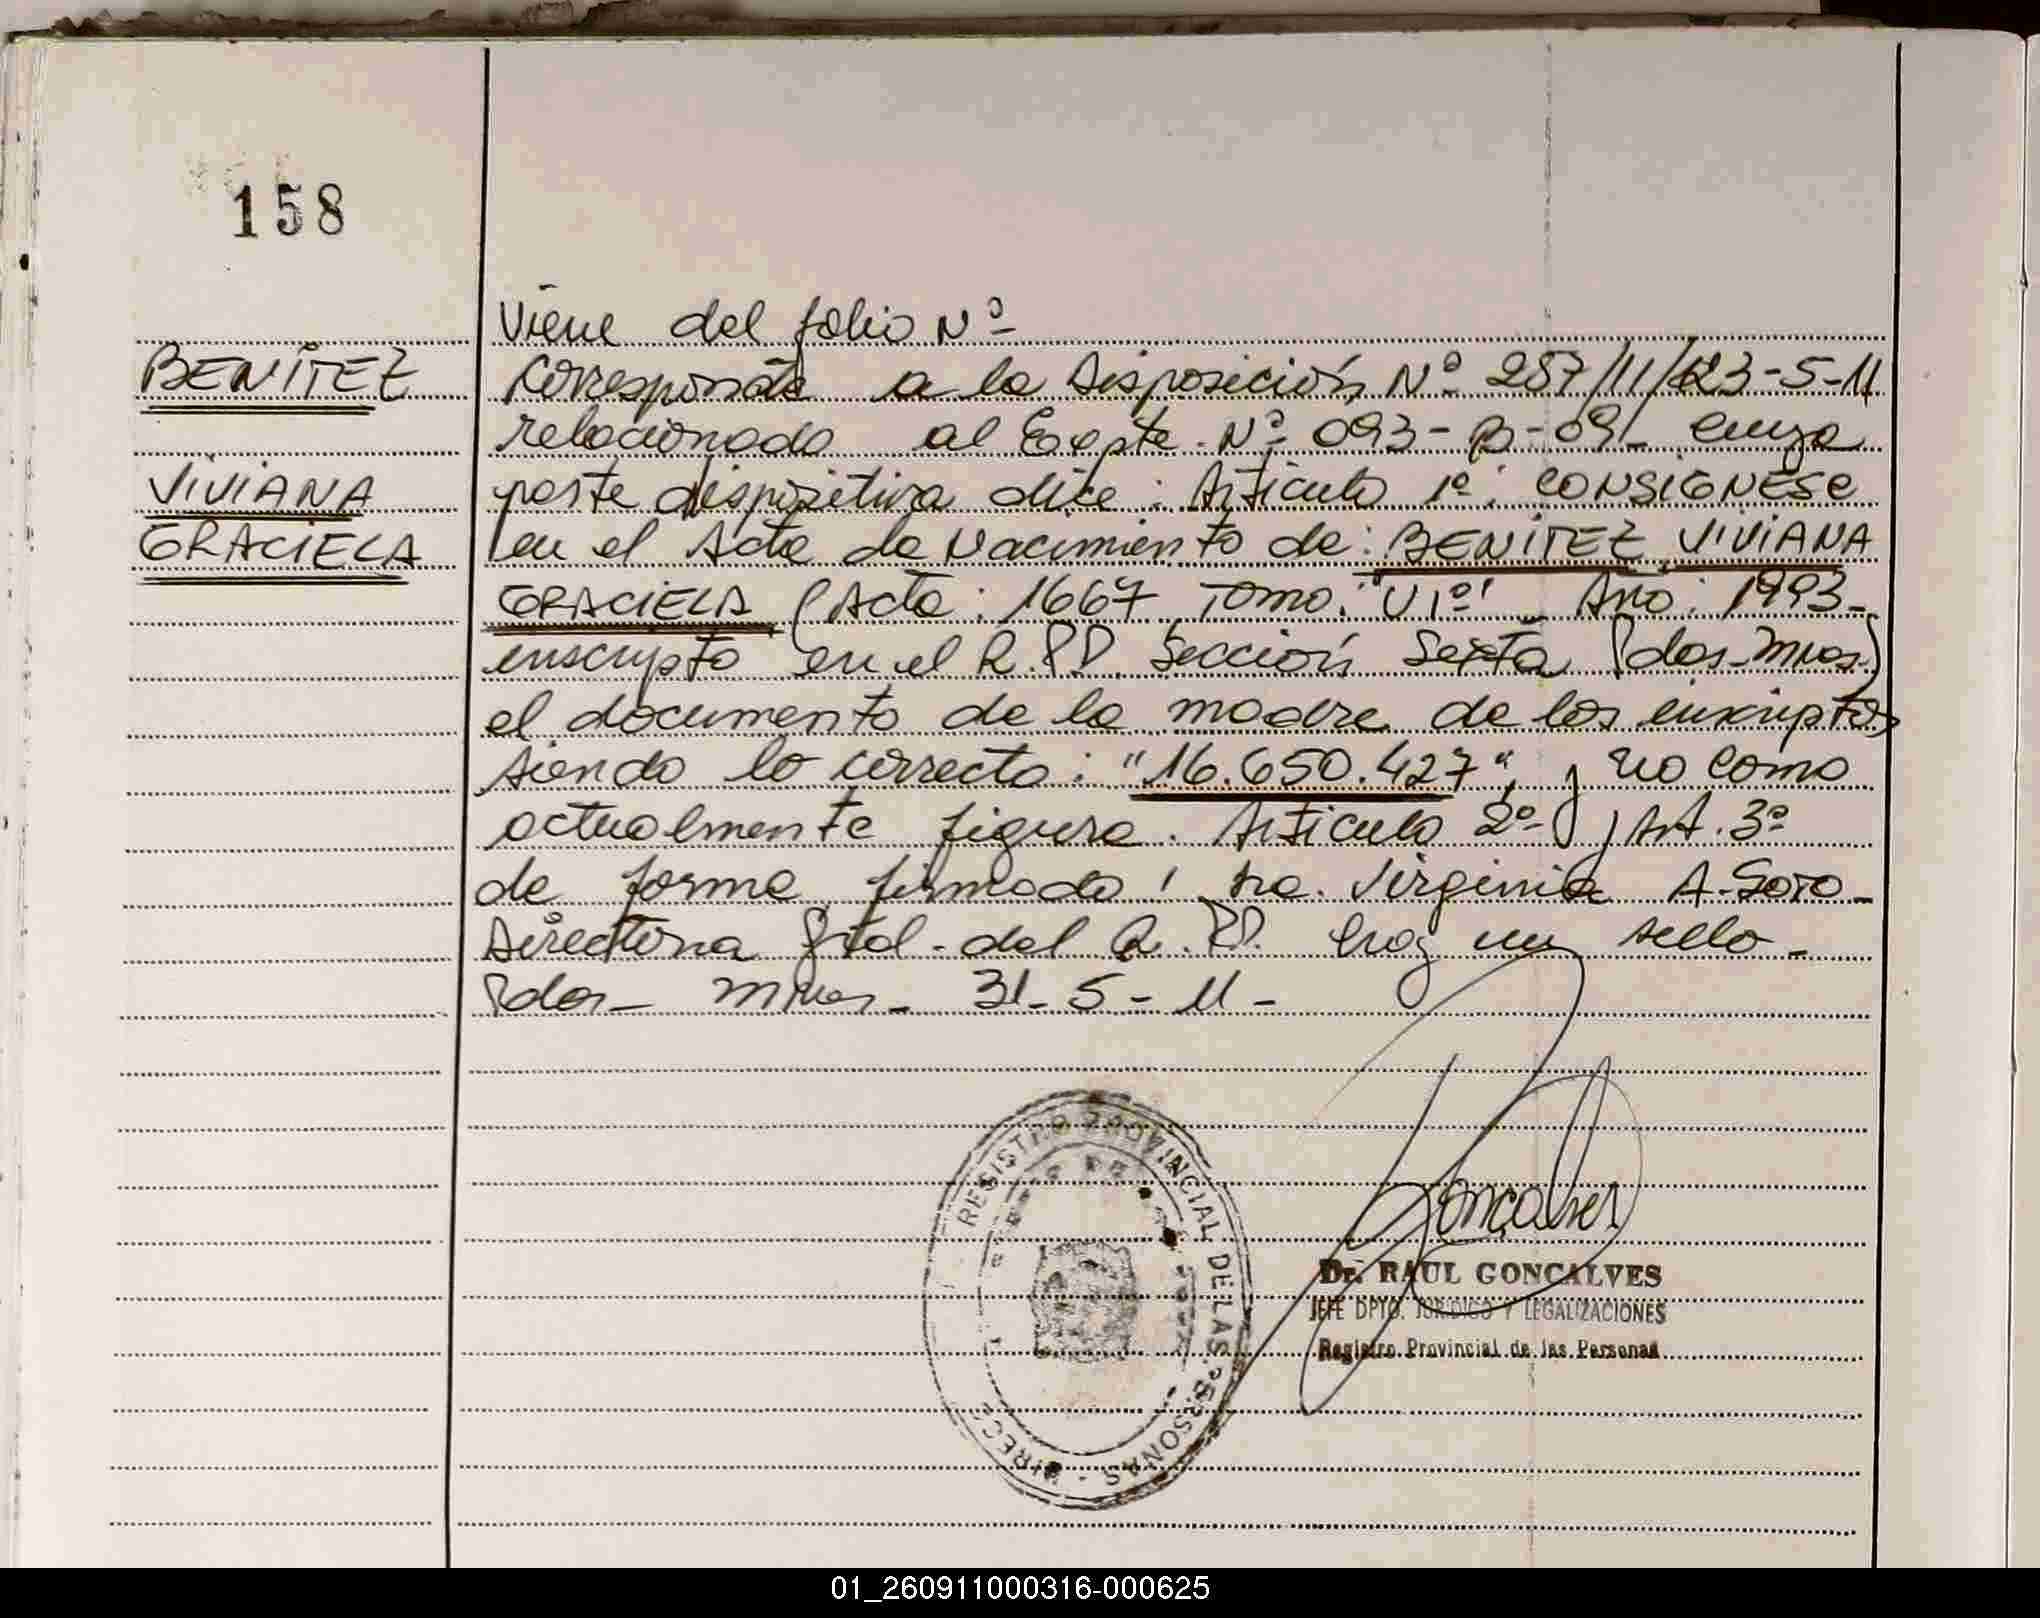 158
Viene del folio Nº
BENITEZ
Corresponde a la Disposición Nº 287/11/ 23-5-11
relacionado al Expte. Nº 093-B-09- cuya
VIVIANA
parte dispositiva dice: Artículo 1º: CONSIGNESE
GRACIELA
en el Acta de Nacimiento de: BENITEZ VIVIANA
GRACIELA (Acta: 1667 Tomo: "V1º" Año: 1993-
inscripto en el R.P.P. Sección Sexta Pdas-Mnes)
el documento de la madre de los inscriptos
siendo lo correcto: "16.650.427", y no como
actualmente figura. Artículo 2º y Art. 3º
de forma, firmado: Sra. Virginia A. Soto-
Directora Gral. del R.P.P. hay un sello-
Pdas- Mnes- 31-5-11-
Gonçalves
REGISTRO PROVINCIAL DE LAS PERSONAS - DIRECC
Dr. RAUL GONCALVES
JEFE DPTO. JURIDICO Y LEGALIZACIONES
Registro Provincial de las Personas
01_260911000316-000625